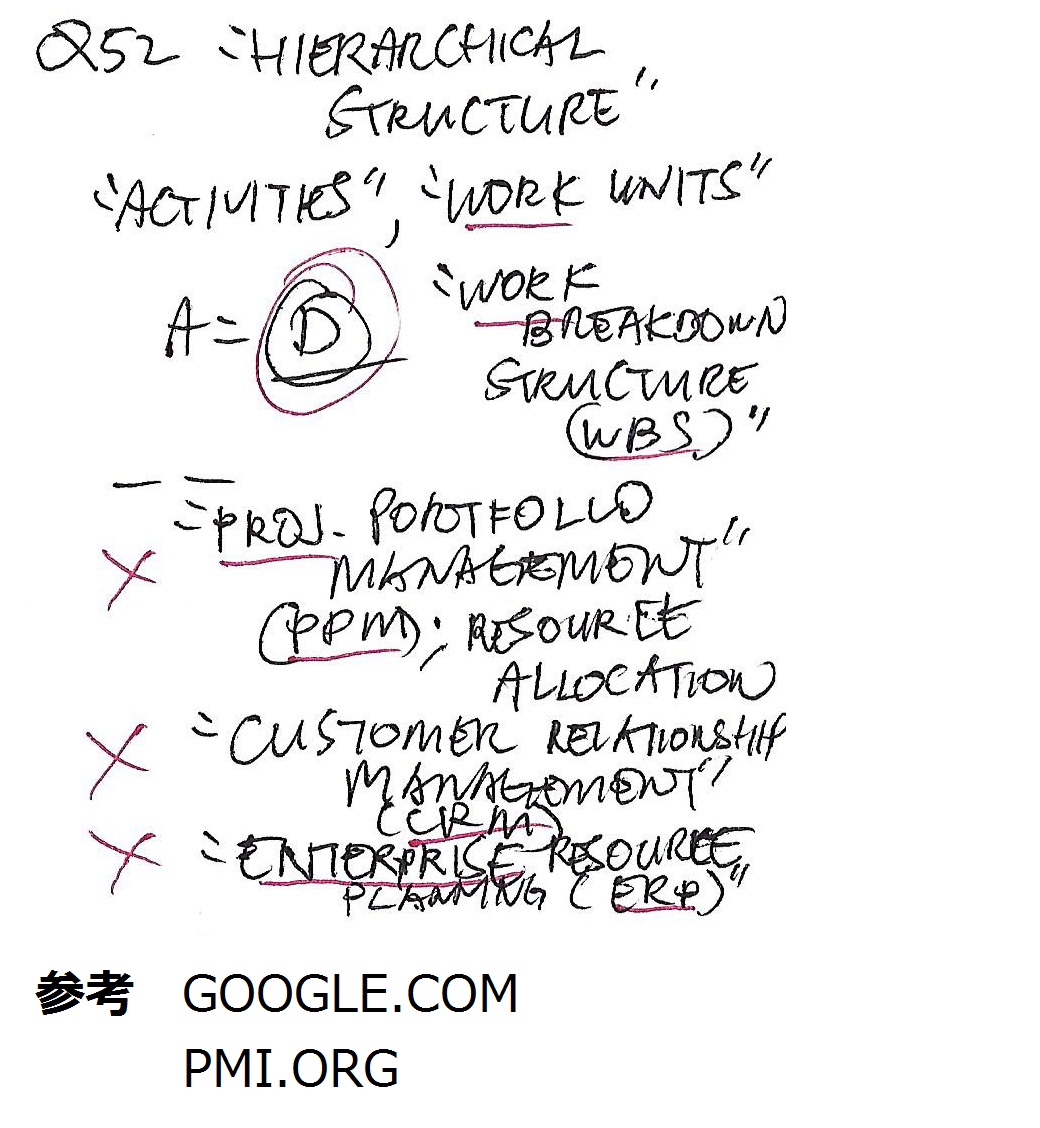 Q52 "HIERARCHICAL
STRUCTURE"
"ACTIVITIES", "WORK UNITS"
A = D "WORK
BREAKDOWN
STRUCTURE
(WBS)"
"PROJ. PORTFOLIO
MANAGEMENT"
(PPM); RESOURCE
ALLOCATION
X
"CUSTOMER RELATIONSHIP
MANAGEMENT"
(CRM)
X
"ENTERPRISE RESOURCE
PLANNING (ERP)"
X
参考 GOOGLE.COM
PMI.ORG